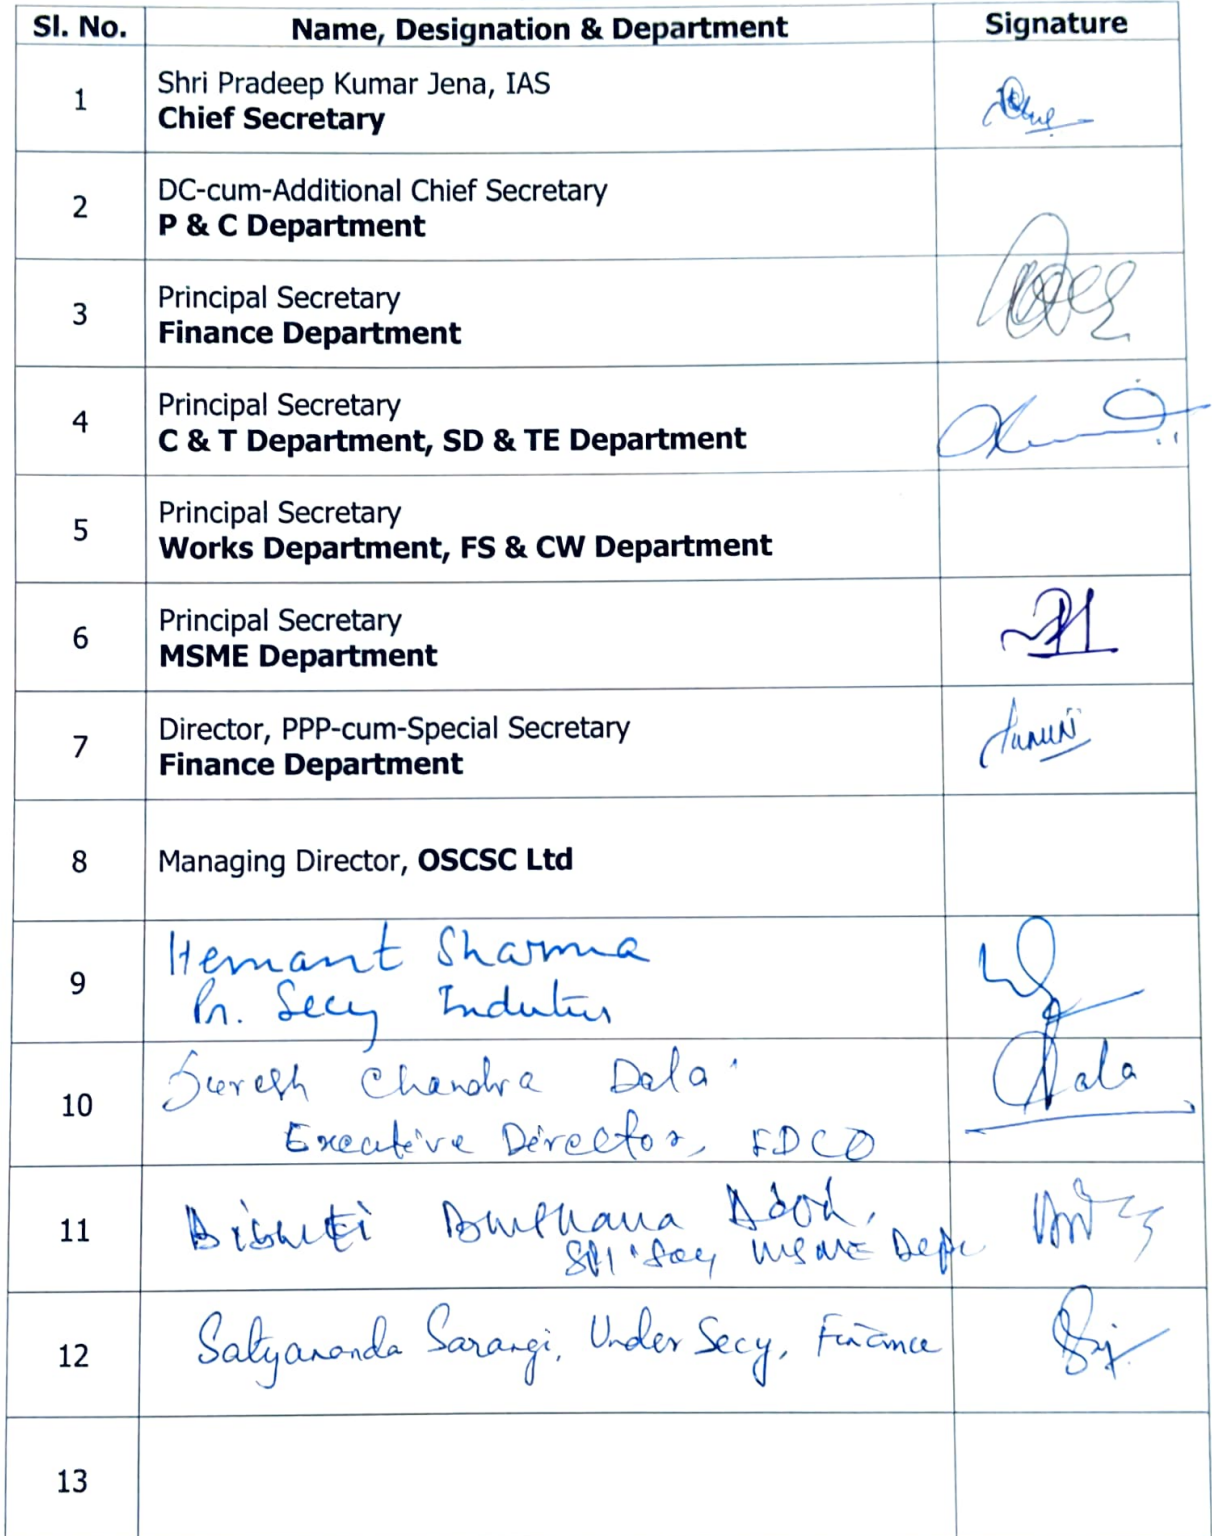 Sl. No. Name, Designation & Department Signature
1
Shri Pradeep Kumar Jena, IAS
Chief Secretary
2
DC-cum-Additional Chief Secretary
P & C Department
3
Principal Secretary
Finance Department
4
Principal Secretary
C & T Department, SD & TE Department
5
Principal Secretary
Works Department, FS & CW Department
6
Principal Secretary
MSME Department
7
Director, PPP-cum-Special Secretary
Finance Department
8
Managing Director, OSCSC Ltd
9
Hemant Sharma
Pr. Secy
10
Suresh Chandra Dala
Executive Director,
11
Bhushana
MSME Dept
12
Satyananda Sarangi, Under Secy, Finance
13